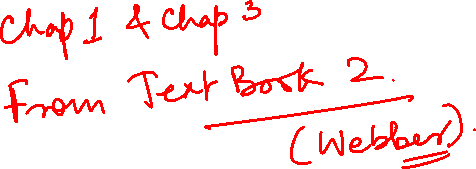 Chap 1 & Chap 3
From Text Book 2.
(Webber).